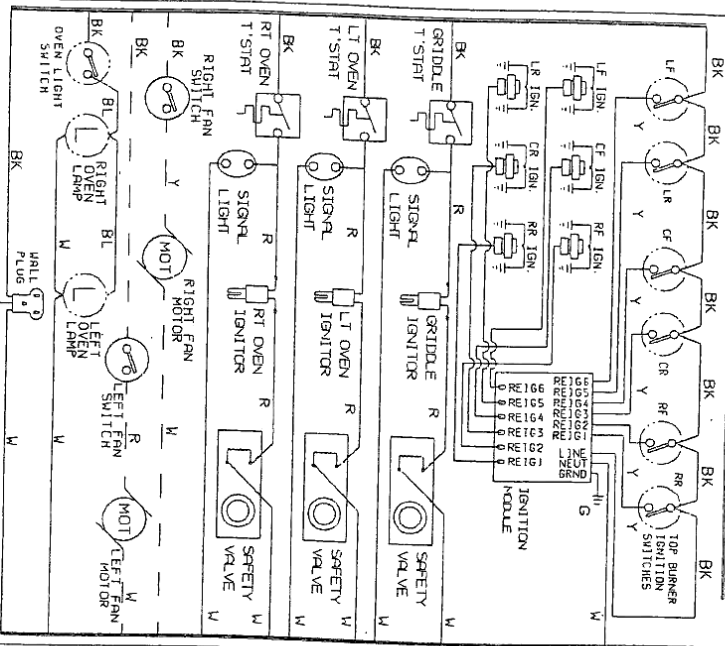 BK
LF
Y
BK
LR
Y
BK
CF
Y
BK
CR
Y
BK
RF
Y
BK
RR
Y
BK
TOP BURNER
IGNITION
SWITCHES
LF IGN.
CF IGN.
RF IGN.
LR IGN.
CR IGN.
RR IGN.
REIG6
REIG5
REIG4
REIG3
REIG2
REIG1
LINE
NEUT
GRND
REIG6
REIG5
REIG4
REIG3
REIG2
REIG1
IGNITION
MODULE
G
W
BK
GRIDDLE
T'STAT
SIGNAL
LIGHT
R
GRIDDLE
IGNITOR
R
SAFETY
VALVE
W
W
BK
LT OVEN
T'STAT
SIGNAL
LIGHT
R
LT OVEN
IGNITOR
R
SAFETY
VALVE
W
W
BK
RT OVEN
T'STAT
SIGNAL
LIGHT
R
RT OVEN
IGNITOR
R
SAFETY
VALVE
W
W
BK
RIGHT FAN
SWITCH
Y
MOT
RIGHT FAN
MOTOR
W
BK
LEFT FAN
SWITCH
R
MOT
LEFT FAN
MOTOR
W
BK
OVEN LIGHT
SWITCH
BL
L
RIGHT
OVEN
LAMP
BL
L
LEFT
OVEN
LAMP
W
W
BK
WALL
PLUG
W